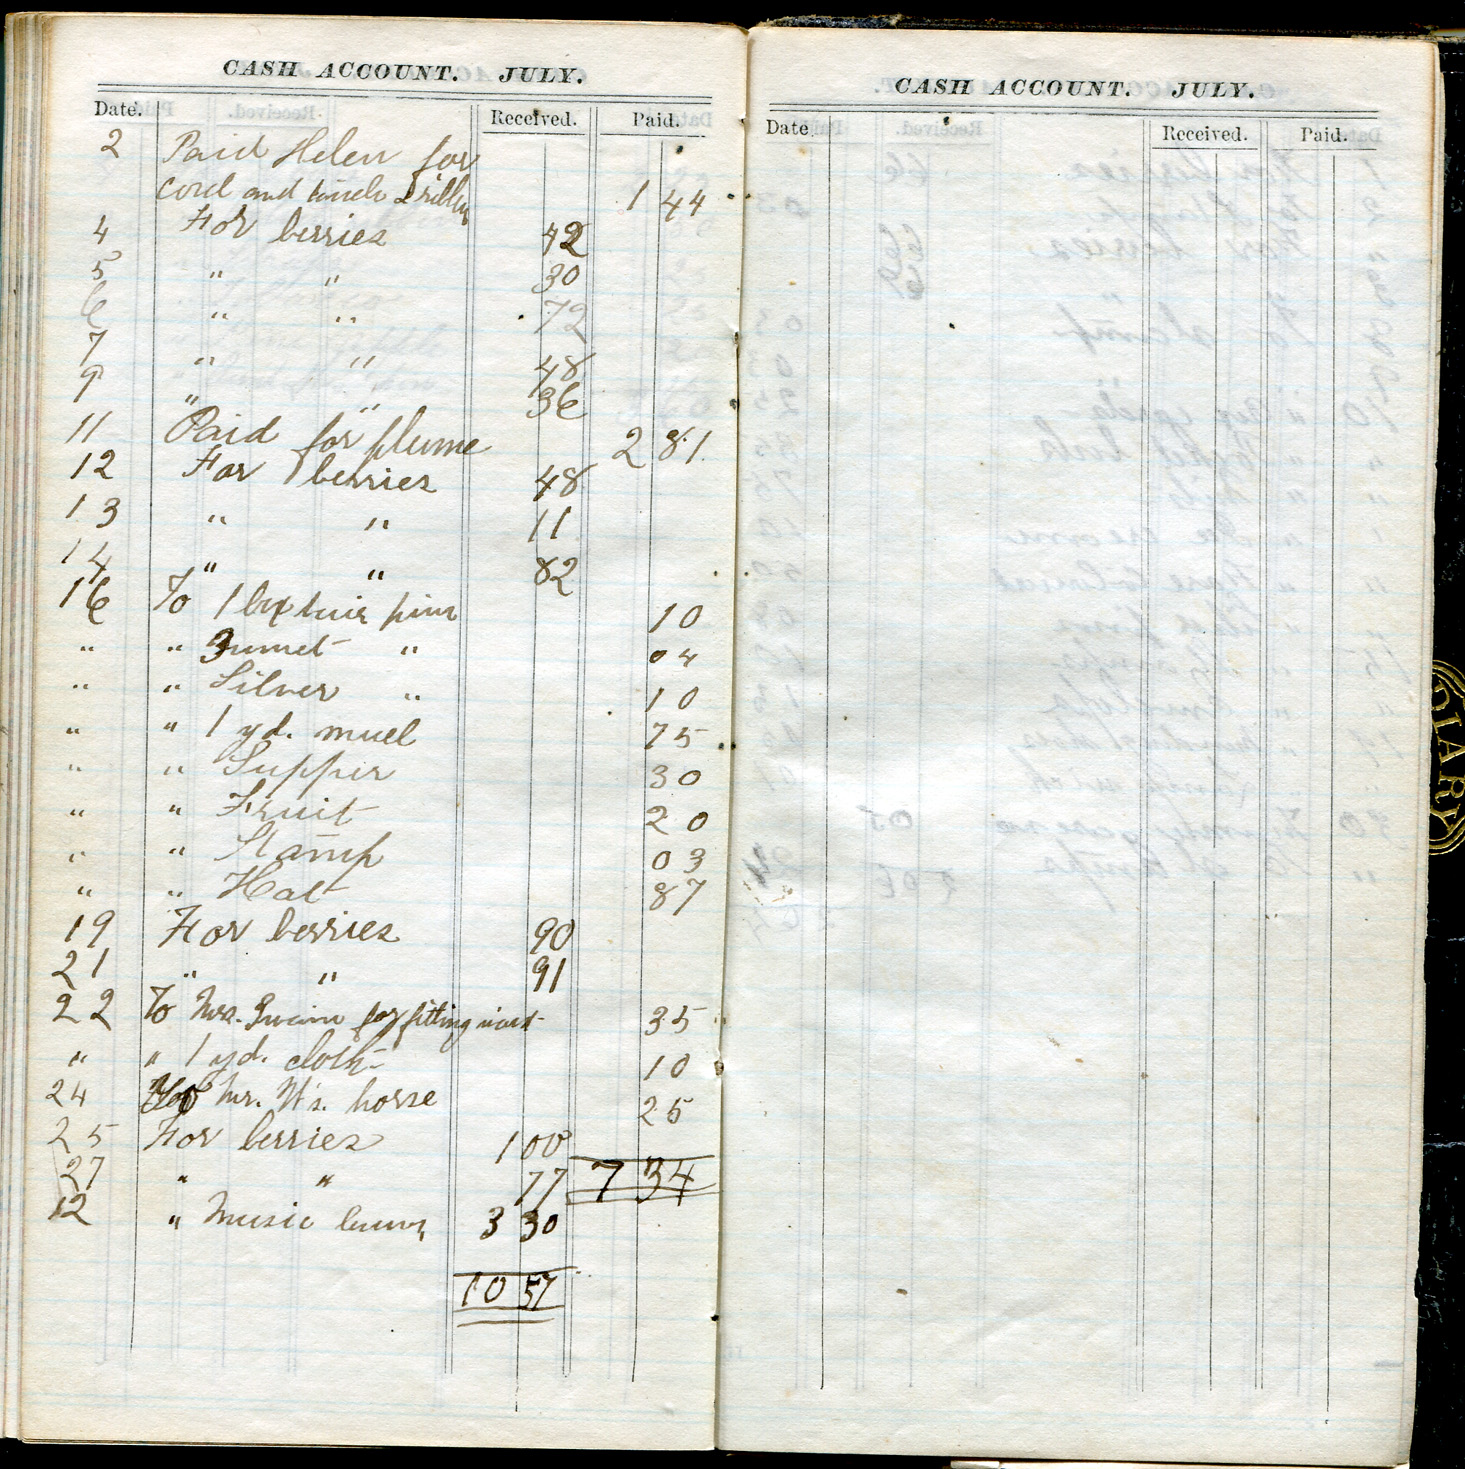 CASH ACCOUNT. JULY.
Date. Received. Paid.
2 Paid Helen for
cord and lunch & 1 44
4 For berries 42
5 " " 30
6 " " 72
7 " " 48
9 " " 36
11 Paid for plume 2 81
12 For berries 48
13 " " 11
14 " " 82
16 To 1 box hair pins 10
" " " 04
" " Silver " 10
" " 1 yd. mull 75
" " Supper 30
" " Fruit 20
" " Stamp 03
" " Hat 87
19 For berries 90
21 " " 91
22 To Mrs. Swain for fitting waist 35
" " 1 yd. cloth 10
24 For Mr. W's. horse 25
25 For berries 1 00
27 " " 77 7 34
12 " Music 3 30
10 57
CASH ACCOUNT. JULY.
Date Received. Paid.
DIARY